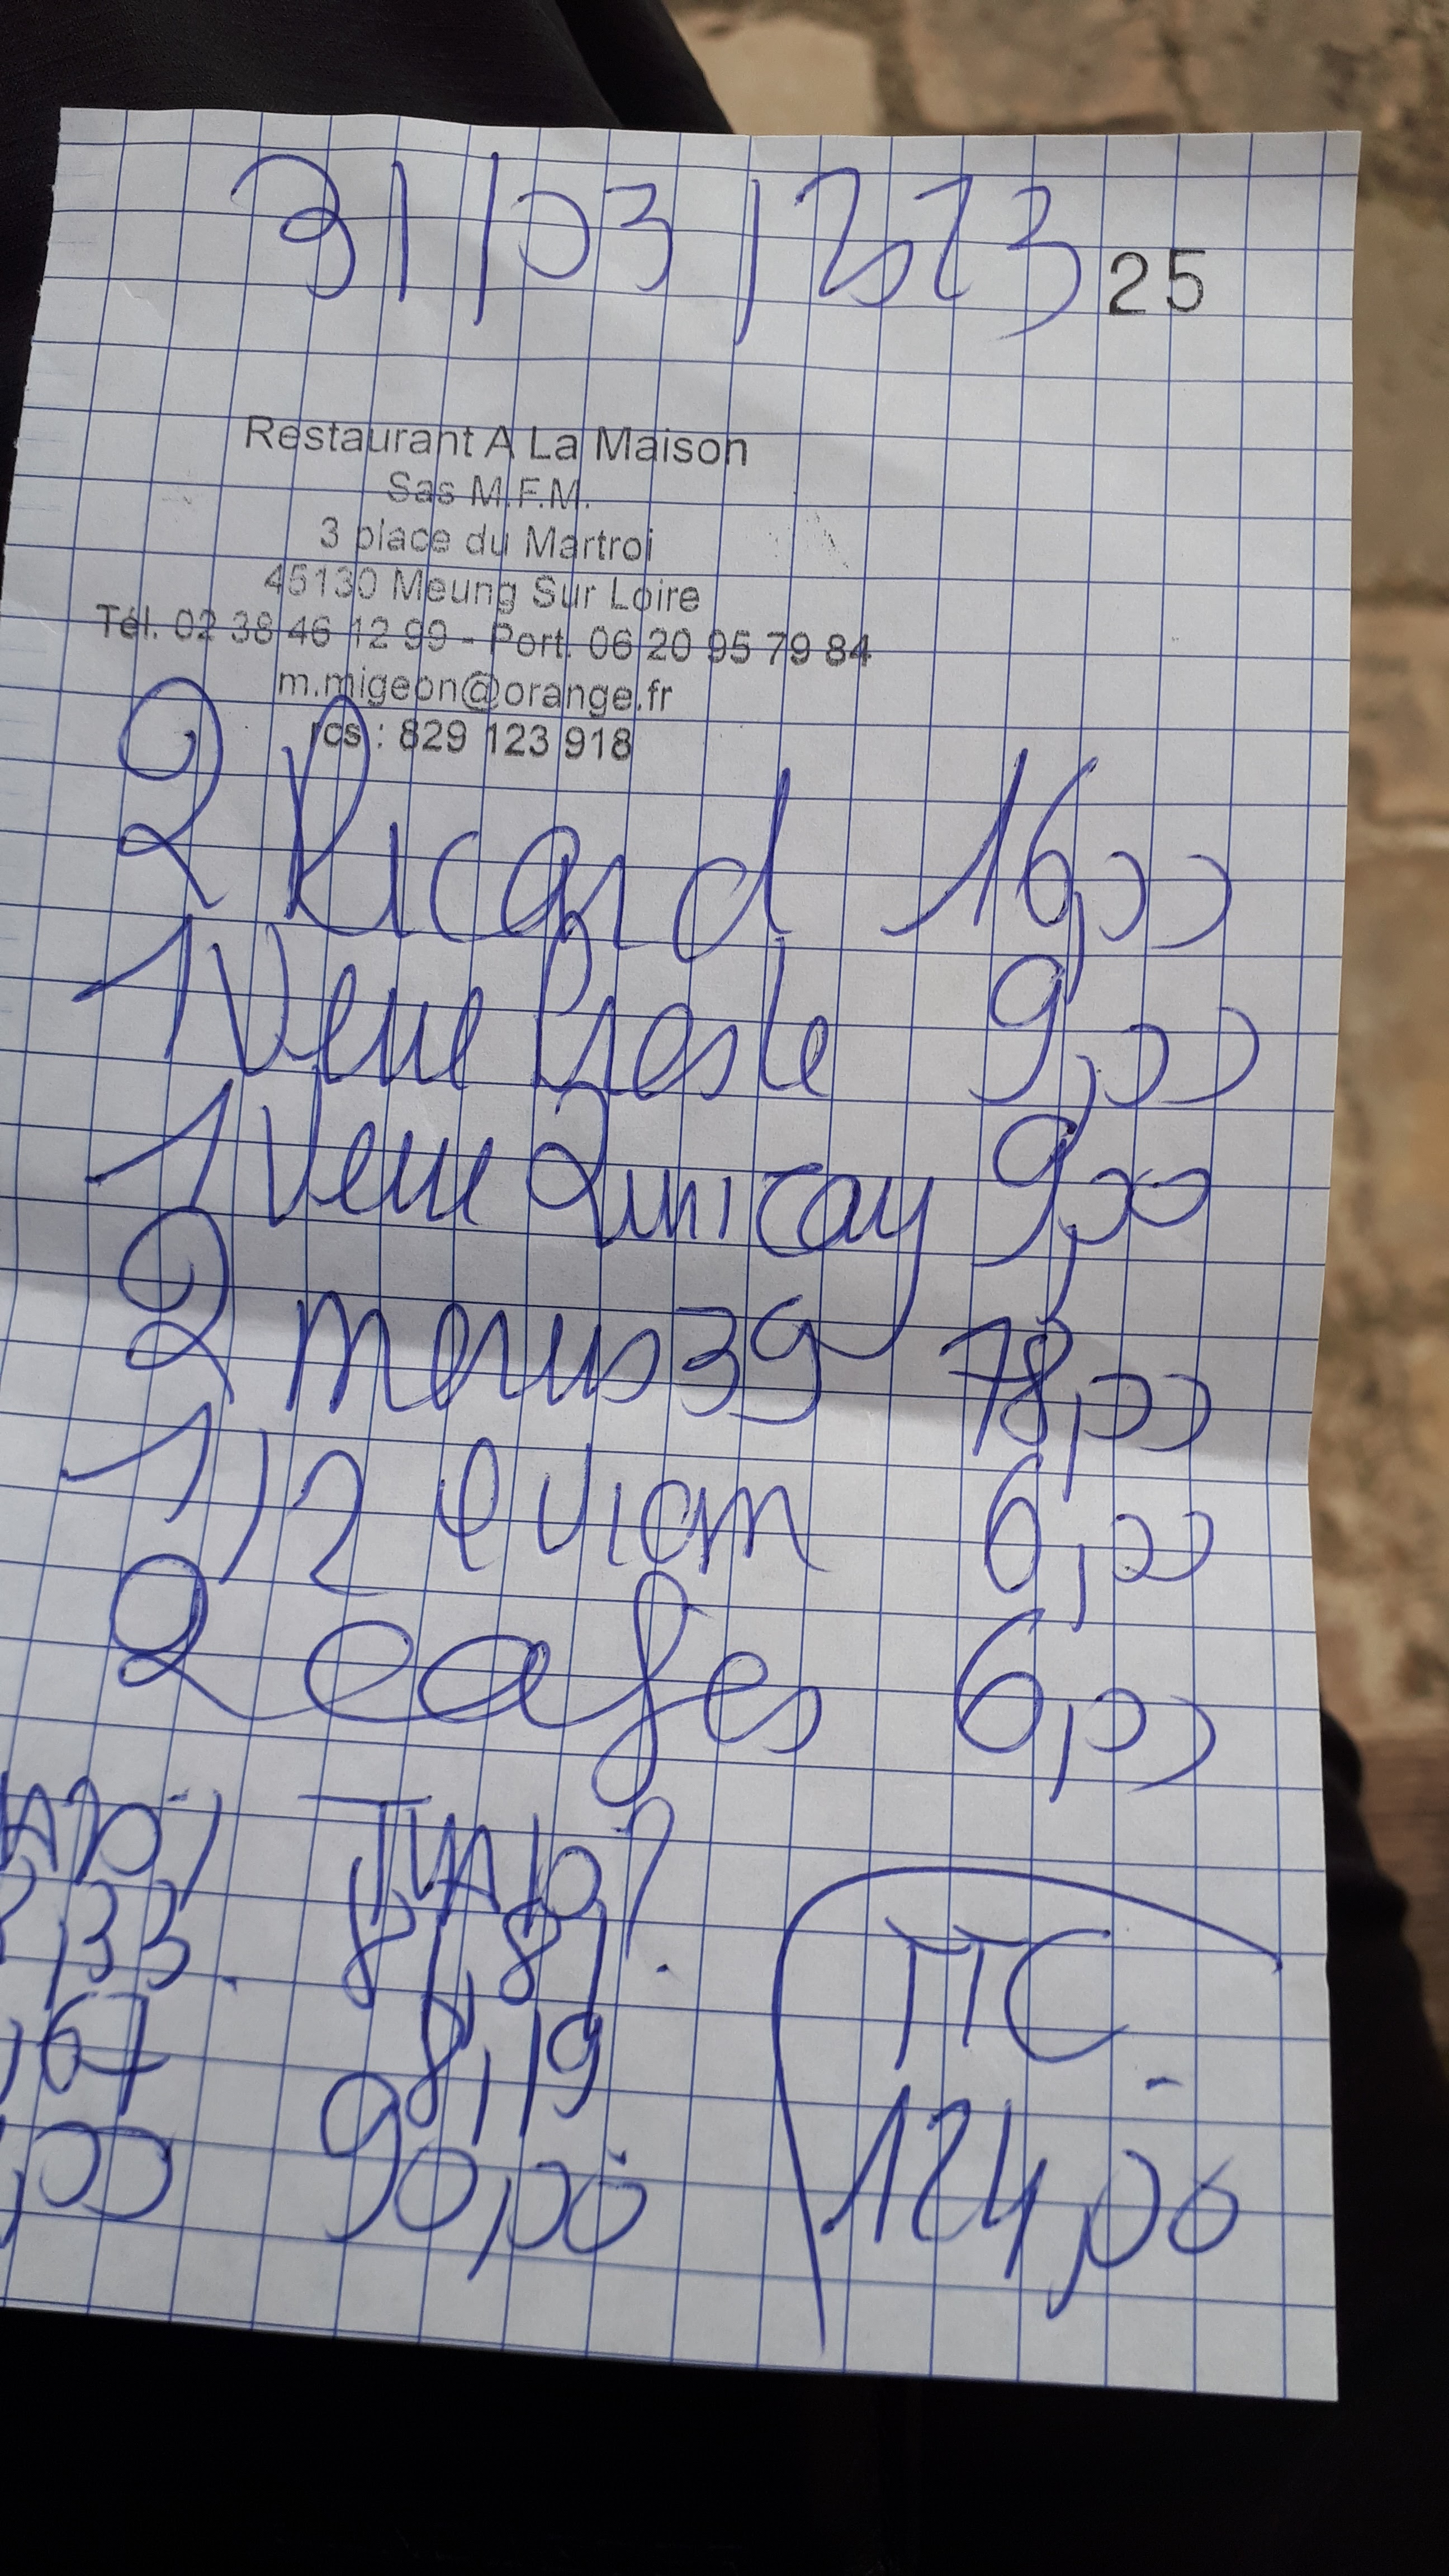 31/03/2023 25
Restaurant A La Maison
Sas M.F.M.
3 place du Martroi
45130 Meung Sur Loire
Tél. 02 38 46 12 99 - Port. 06 20 95 79 84
m.migeon@orange.fr
rcs : 829 123 918
2 Ricard 16,00
1 Verre 9,00
1 Verre Quincay 9,00
2 menus 39 78,00
1/2 evian 6,00
2 cafes 6,00
VA20% TVA 10%
,33 81,81 TTC
,67 8,19
,00 90,00 124,00